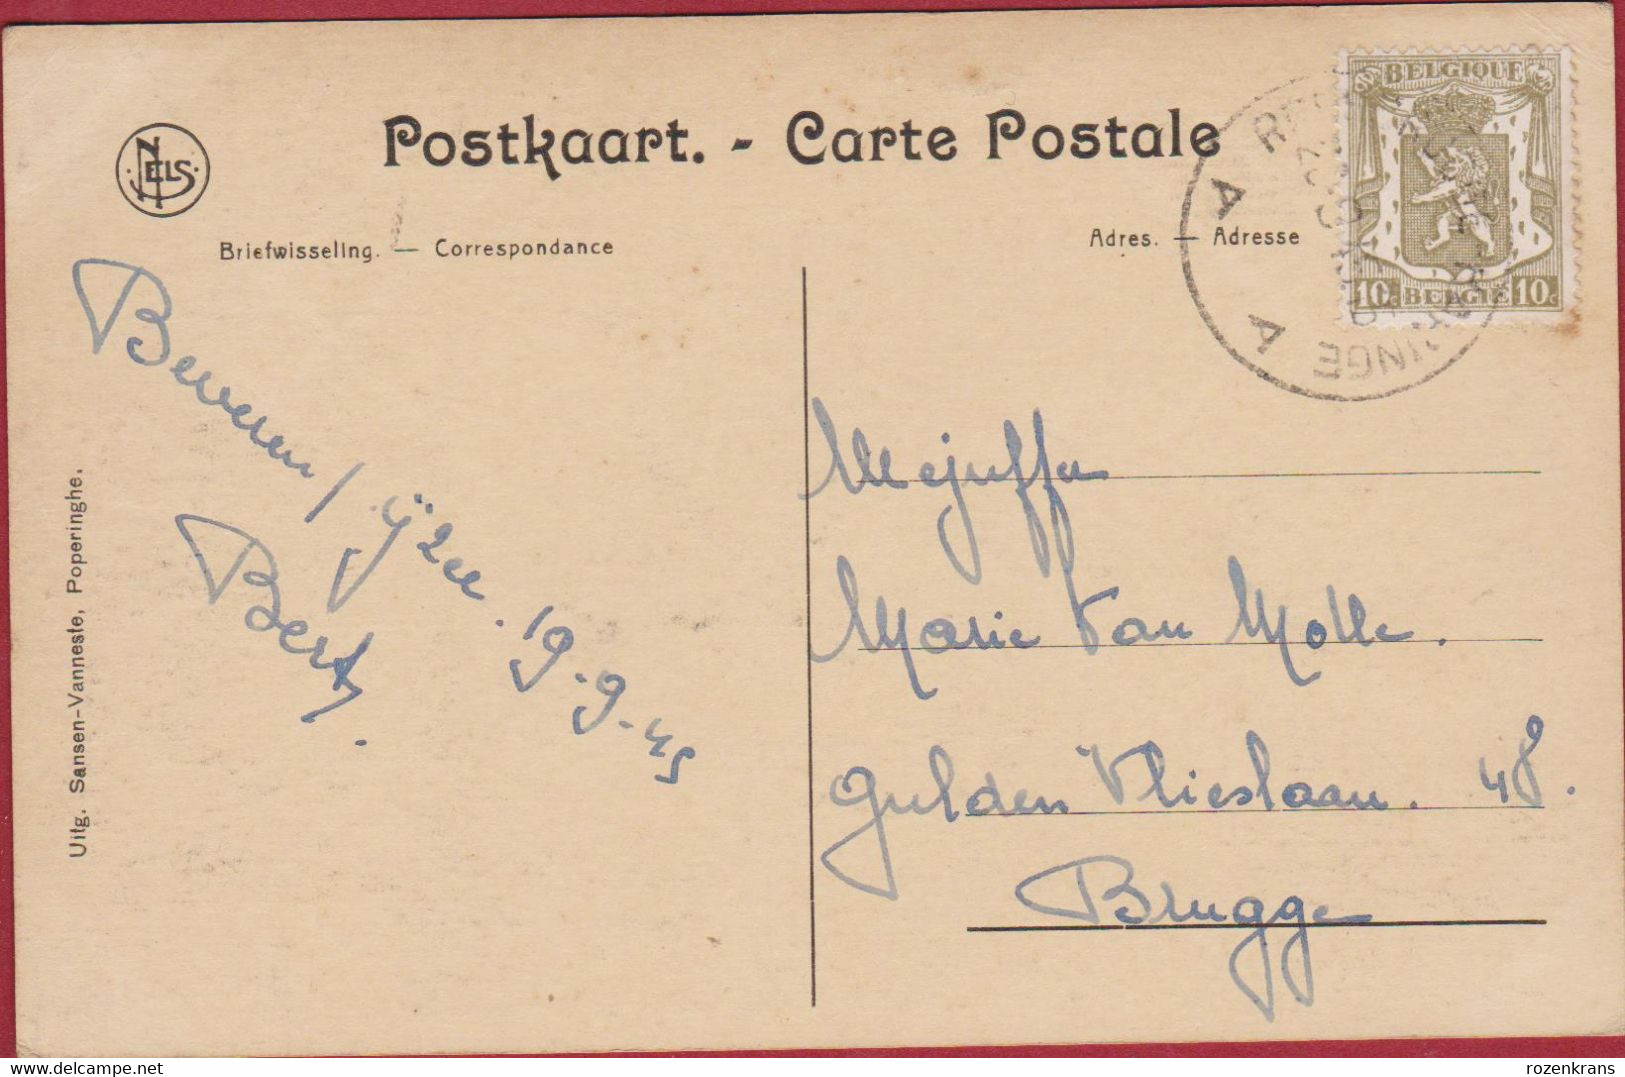 Postkaart. - Carte Postale
NELS.
Briefwisseling. — Correspondance
Adres. — Adresse
BELGIQUE
10c BELGIË 10c
INGE
A A
Beveren / ijzer. 19-9-45
Bert.
Mejuffer
Marie Van Molle.
Gulden Vlieslaan. 48.
Brugge
Uitg. Sansen-Vanneste, Poperinghe.
delcampe.net
rozenkrans